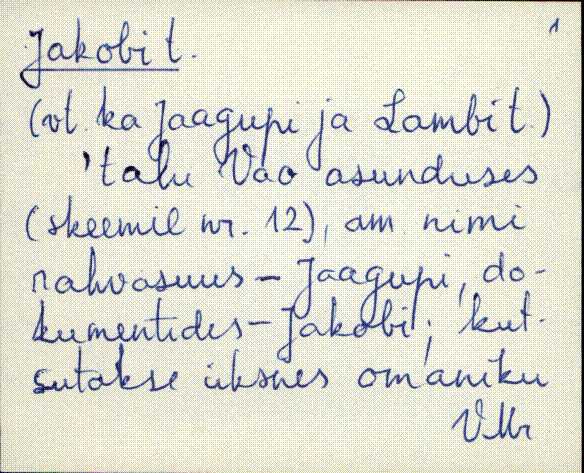 1
Jakobi t.
(vt. ka Jaagupi ja Lambi t.)
'talu Vao asunduses
(skeemil nr. 12), am nimi
rahvasuus - Jaagupi, do-
kumentides - Jakobi; kut-
sutakse üksnes omaniku
VMr